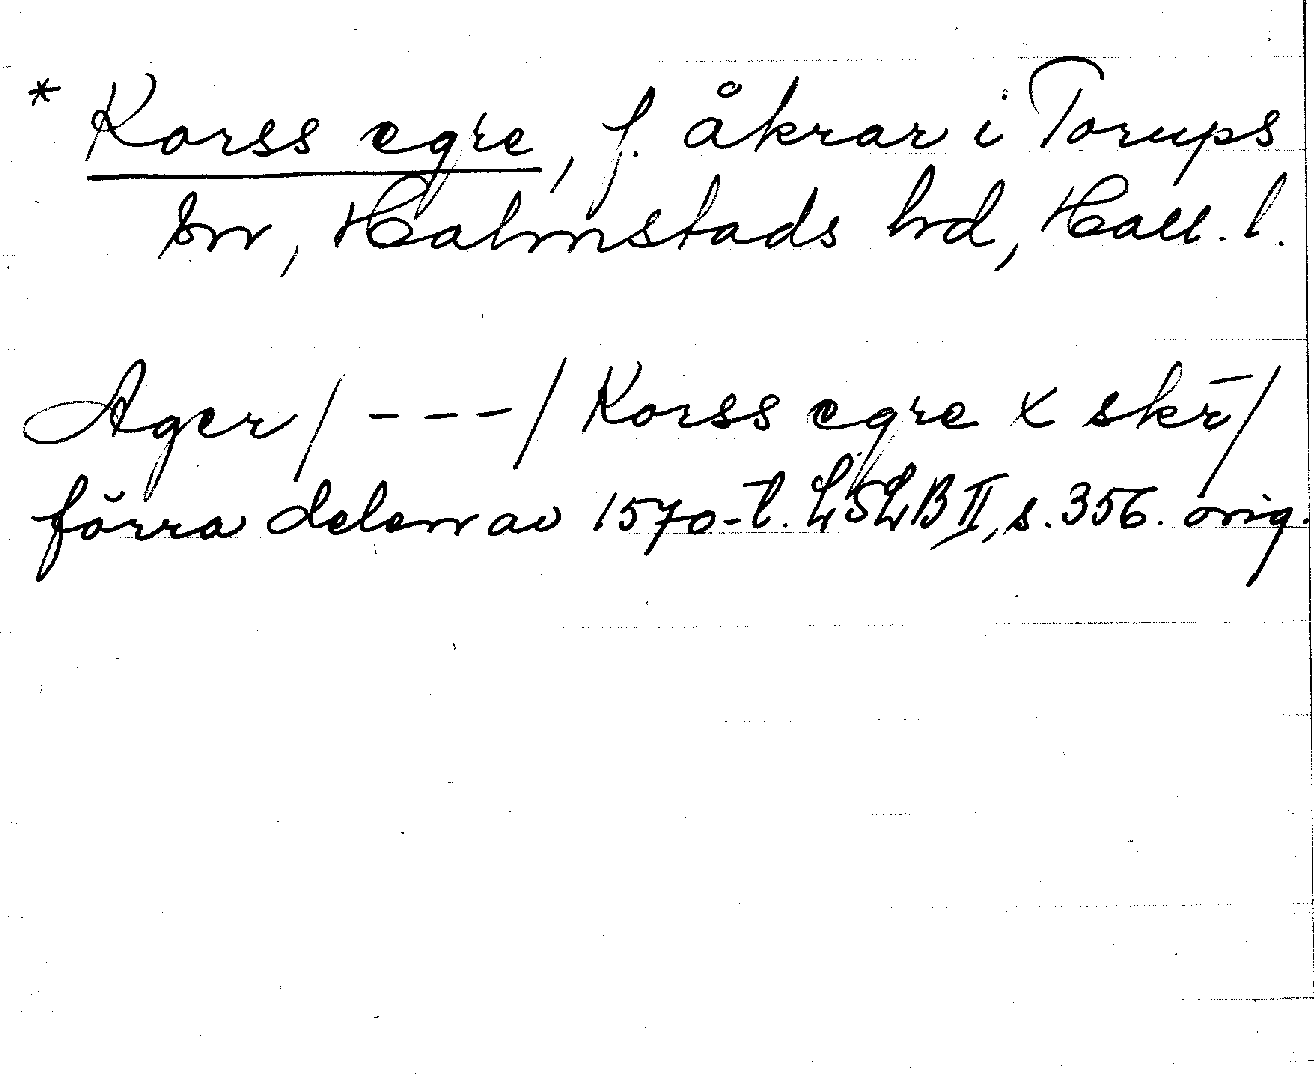 * Korss egre, f. åkrar i Torups
sn, Halmstads hd, Hall. l.
Ager / - - - / Korss egre x skr̄ /
förra delen av 1570-t. LSLB II, s. 356. orig.